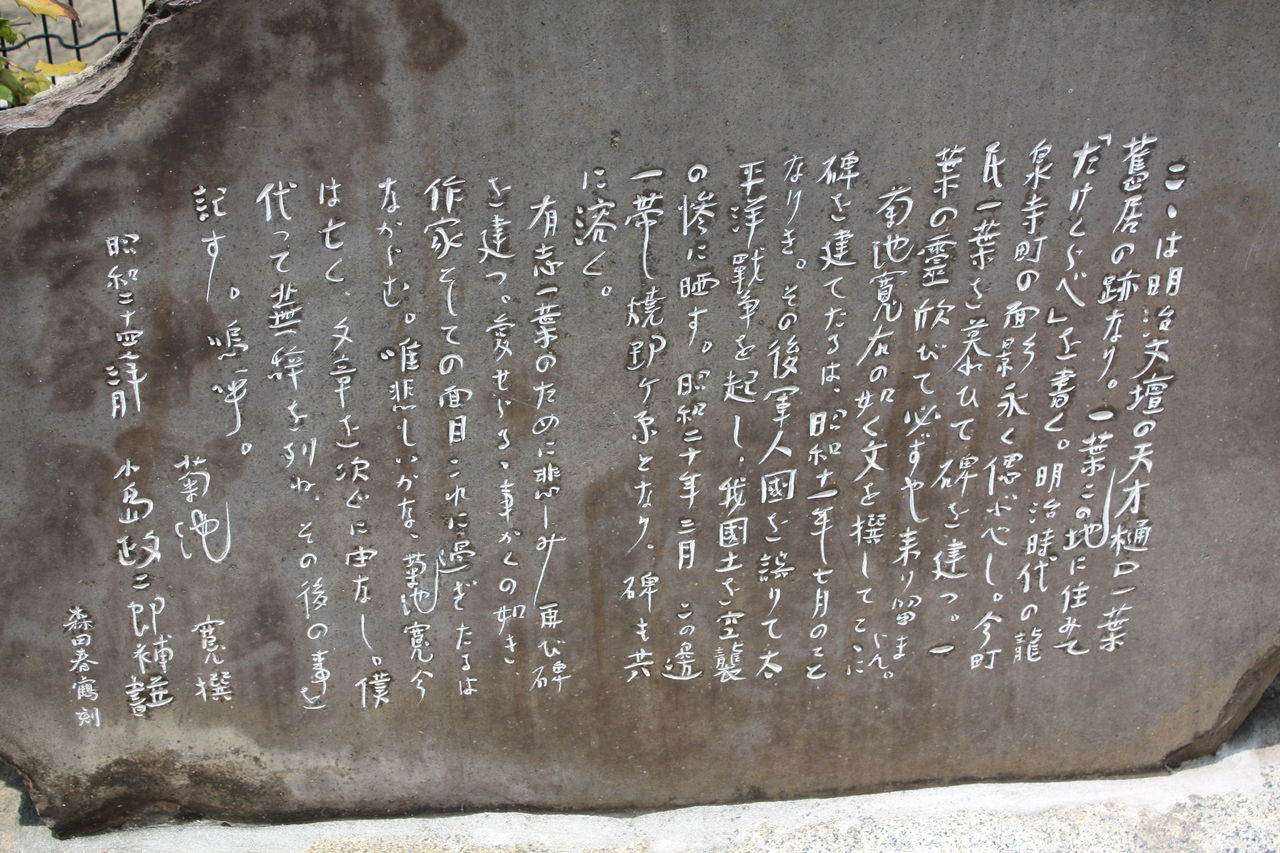 こゝは明治文壇の天才樋口一葉
舊居の跡なり。一葉この地に住みて
「たけくらべ」を書く。明治時代の龍
泉寺町の面影永く偲ぶべし。今町
民一葉を慕ひて碑を建つ。一
葉の靈欣びて必ずや来り留まらん。
菊池寛右の如く文を撰してここに
碑を建てたるは、昭和十一年七月のこと
なりき。その後軍人國を誤りて太
平洋戰争を起し、我國土を空襲
の惨に晒す。昭和二十年三月この邊
一帯焼野ヶ原となり、碑も共
に溶く。
有志一葉のために悲しみ再び碑
を建つ。愛せらるゝ事かくの如き
作家そしての面目これに過ぎたるは
ながらむ。唯悲しいかな、菊池寛今
は亡く、文章を次ぐに由なし。僕
代って蕪辞を列ね、その後の事を
記す。嗚呼。
菊池寛撰
昭和二十四年三月 小島政二郎補並書
森田春鶴刻